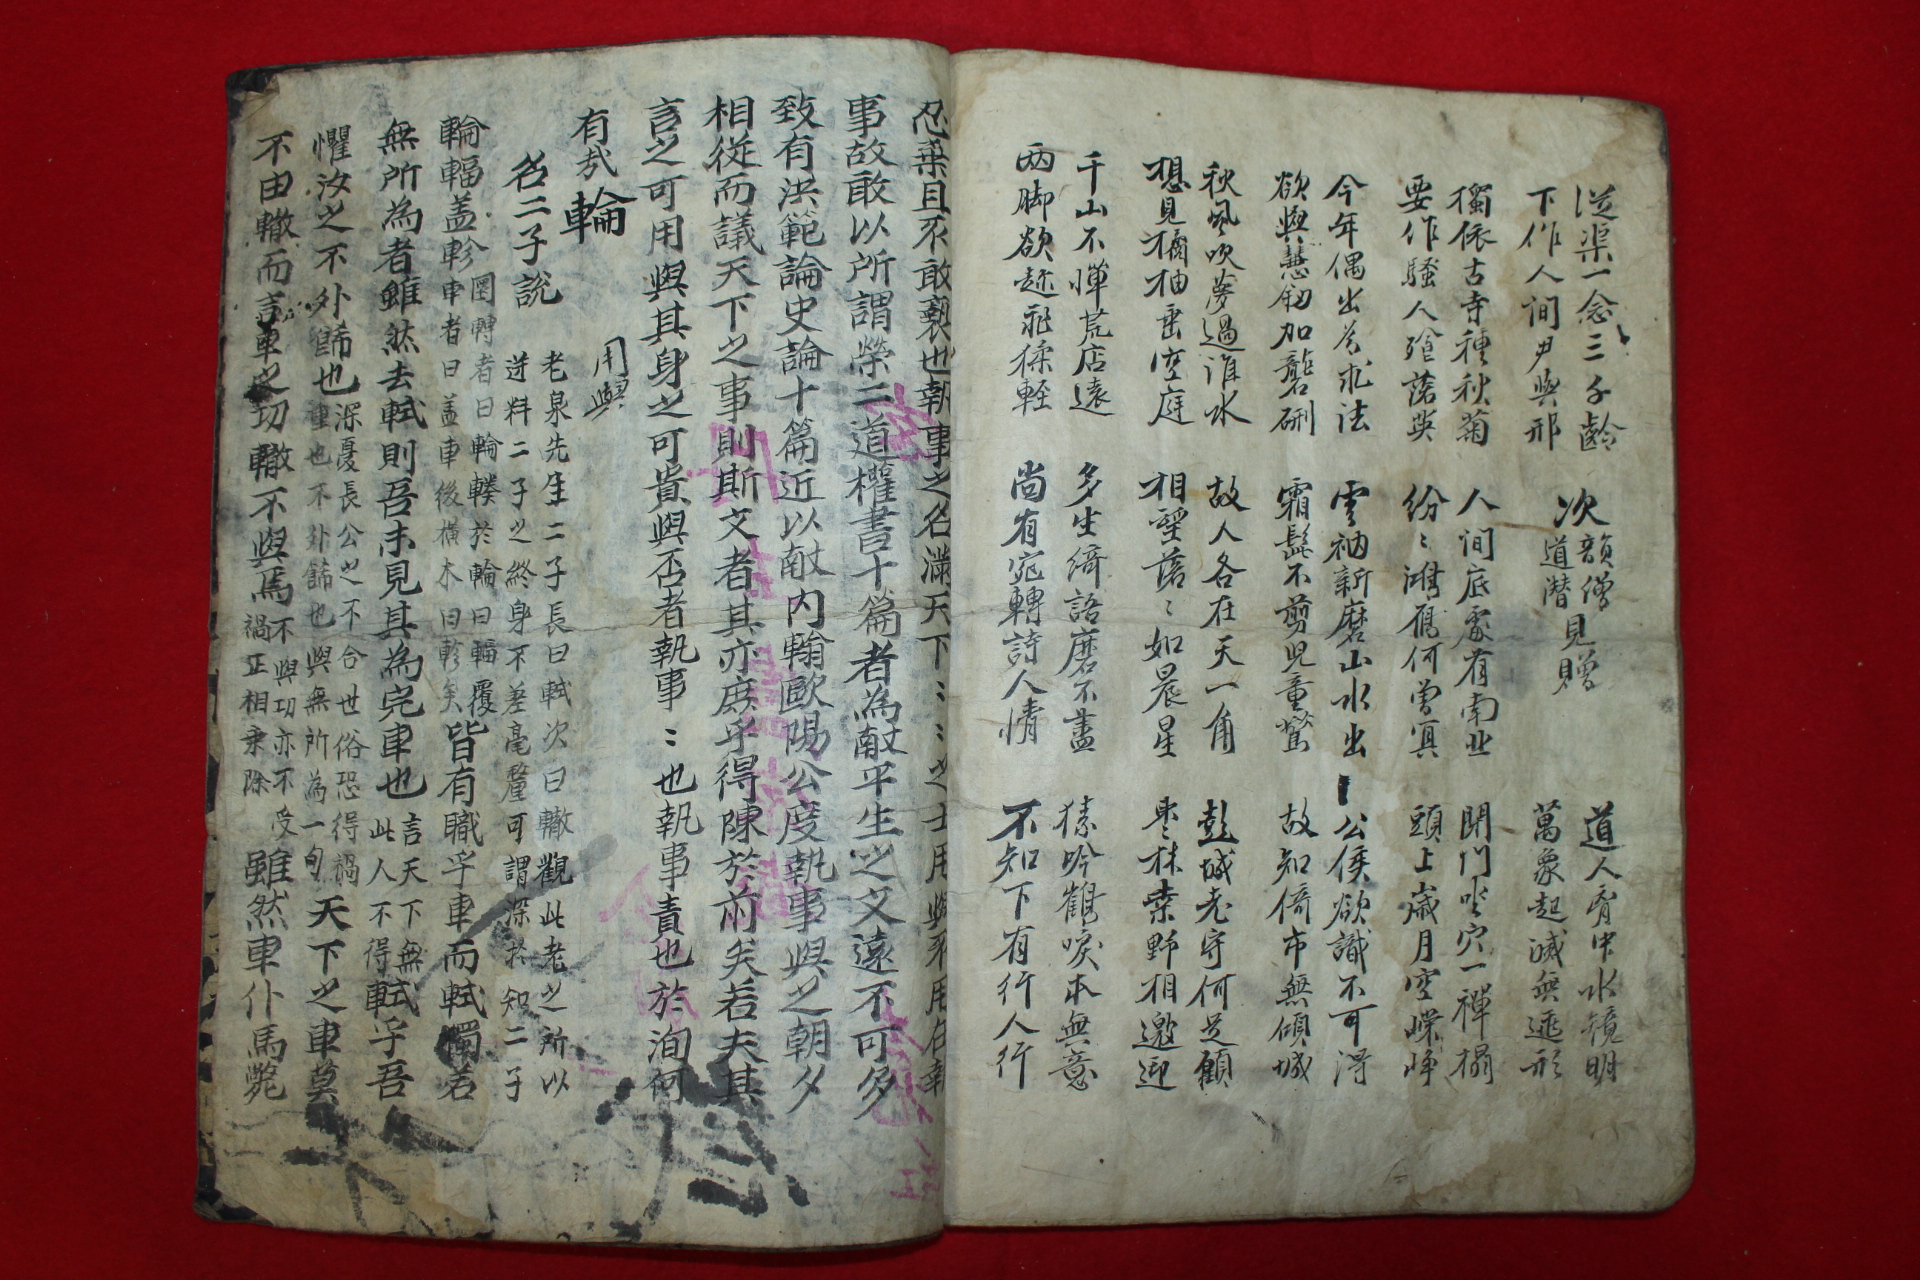 從渠一念三千齡　次韻僧道潛見贈　道人胷中水鏡明
下作人间尹與邢　萬象起滅無逃形
獨依古寺種秋菊　人间底處有南北　閉门坐穴一禪榻
要作騷人飡落英　紛〻鴻雁何曾冥　頭上歲月空嶸崢
今年偶出爲求法　雲衲新磨山水出　公侯欲識不可得
欲與慧釼加礱硎　霜髭不剪児童驚　故知倚市無傾城
秋風吹夢過淮水　故人各在天一角　彭城老守何足顧
想見橘柚垂空庭　相望落〻如晨星　棗林桒野相邀迎
千山不憚荒店遠　多生綺語磨不盡　猿吟鶴唳本無意
兩脚欲趂飛猱輕　尚有宛轉詩人情　不知下有行人行
忍棄且不敢褻也執事之名滿天下〻〻之士用與不用在執
事故敢以所謂榮二道權書十篇者為獻平生之文遠不可多
致有洪範論史論十篇近以献内翰歐陽公度執事與之朝夕
相從而議天下之事則斯文者其亦庶乎得陳於前矣若夫其
言之可用與其身之可貴與否者執事〻也執事責也於洵何
有㢤　輪　用與
名二子說　老泉先生二子長曰軾次曰轍觀此老之所以
逆料二子之終身不差毫釐可謂深於知二子
輪輻盖軫　圜轉者曰輪轑於輪曰輻覆車者曰盖車後橫木曰軫矣　皆有職乎車而軾獨若
無所為者雖然去軾則吾未見其為完車也　言天下無此人不得　軾乎吾
懼汝之不外餙也　深憂長公之不合世俗恐得禍重也不外餙也與無所為一句　天下之車莫
不由轍而言車之功轍不與焉　不與功亦不受禍正相乘除　雖然車仆馬斃